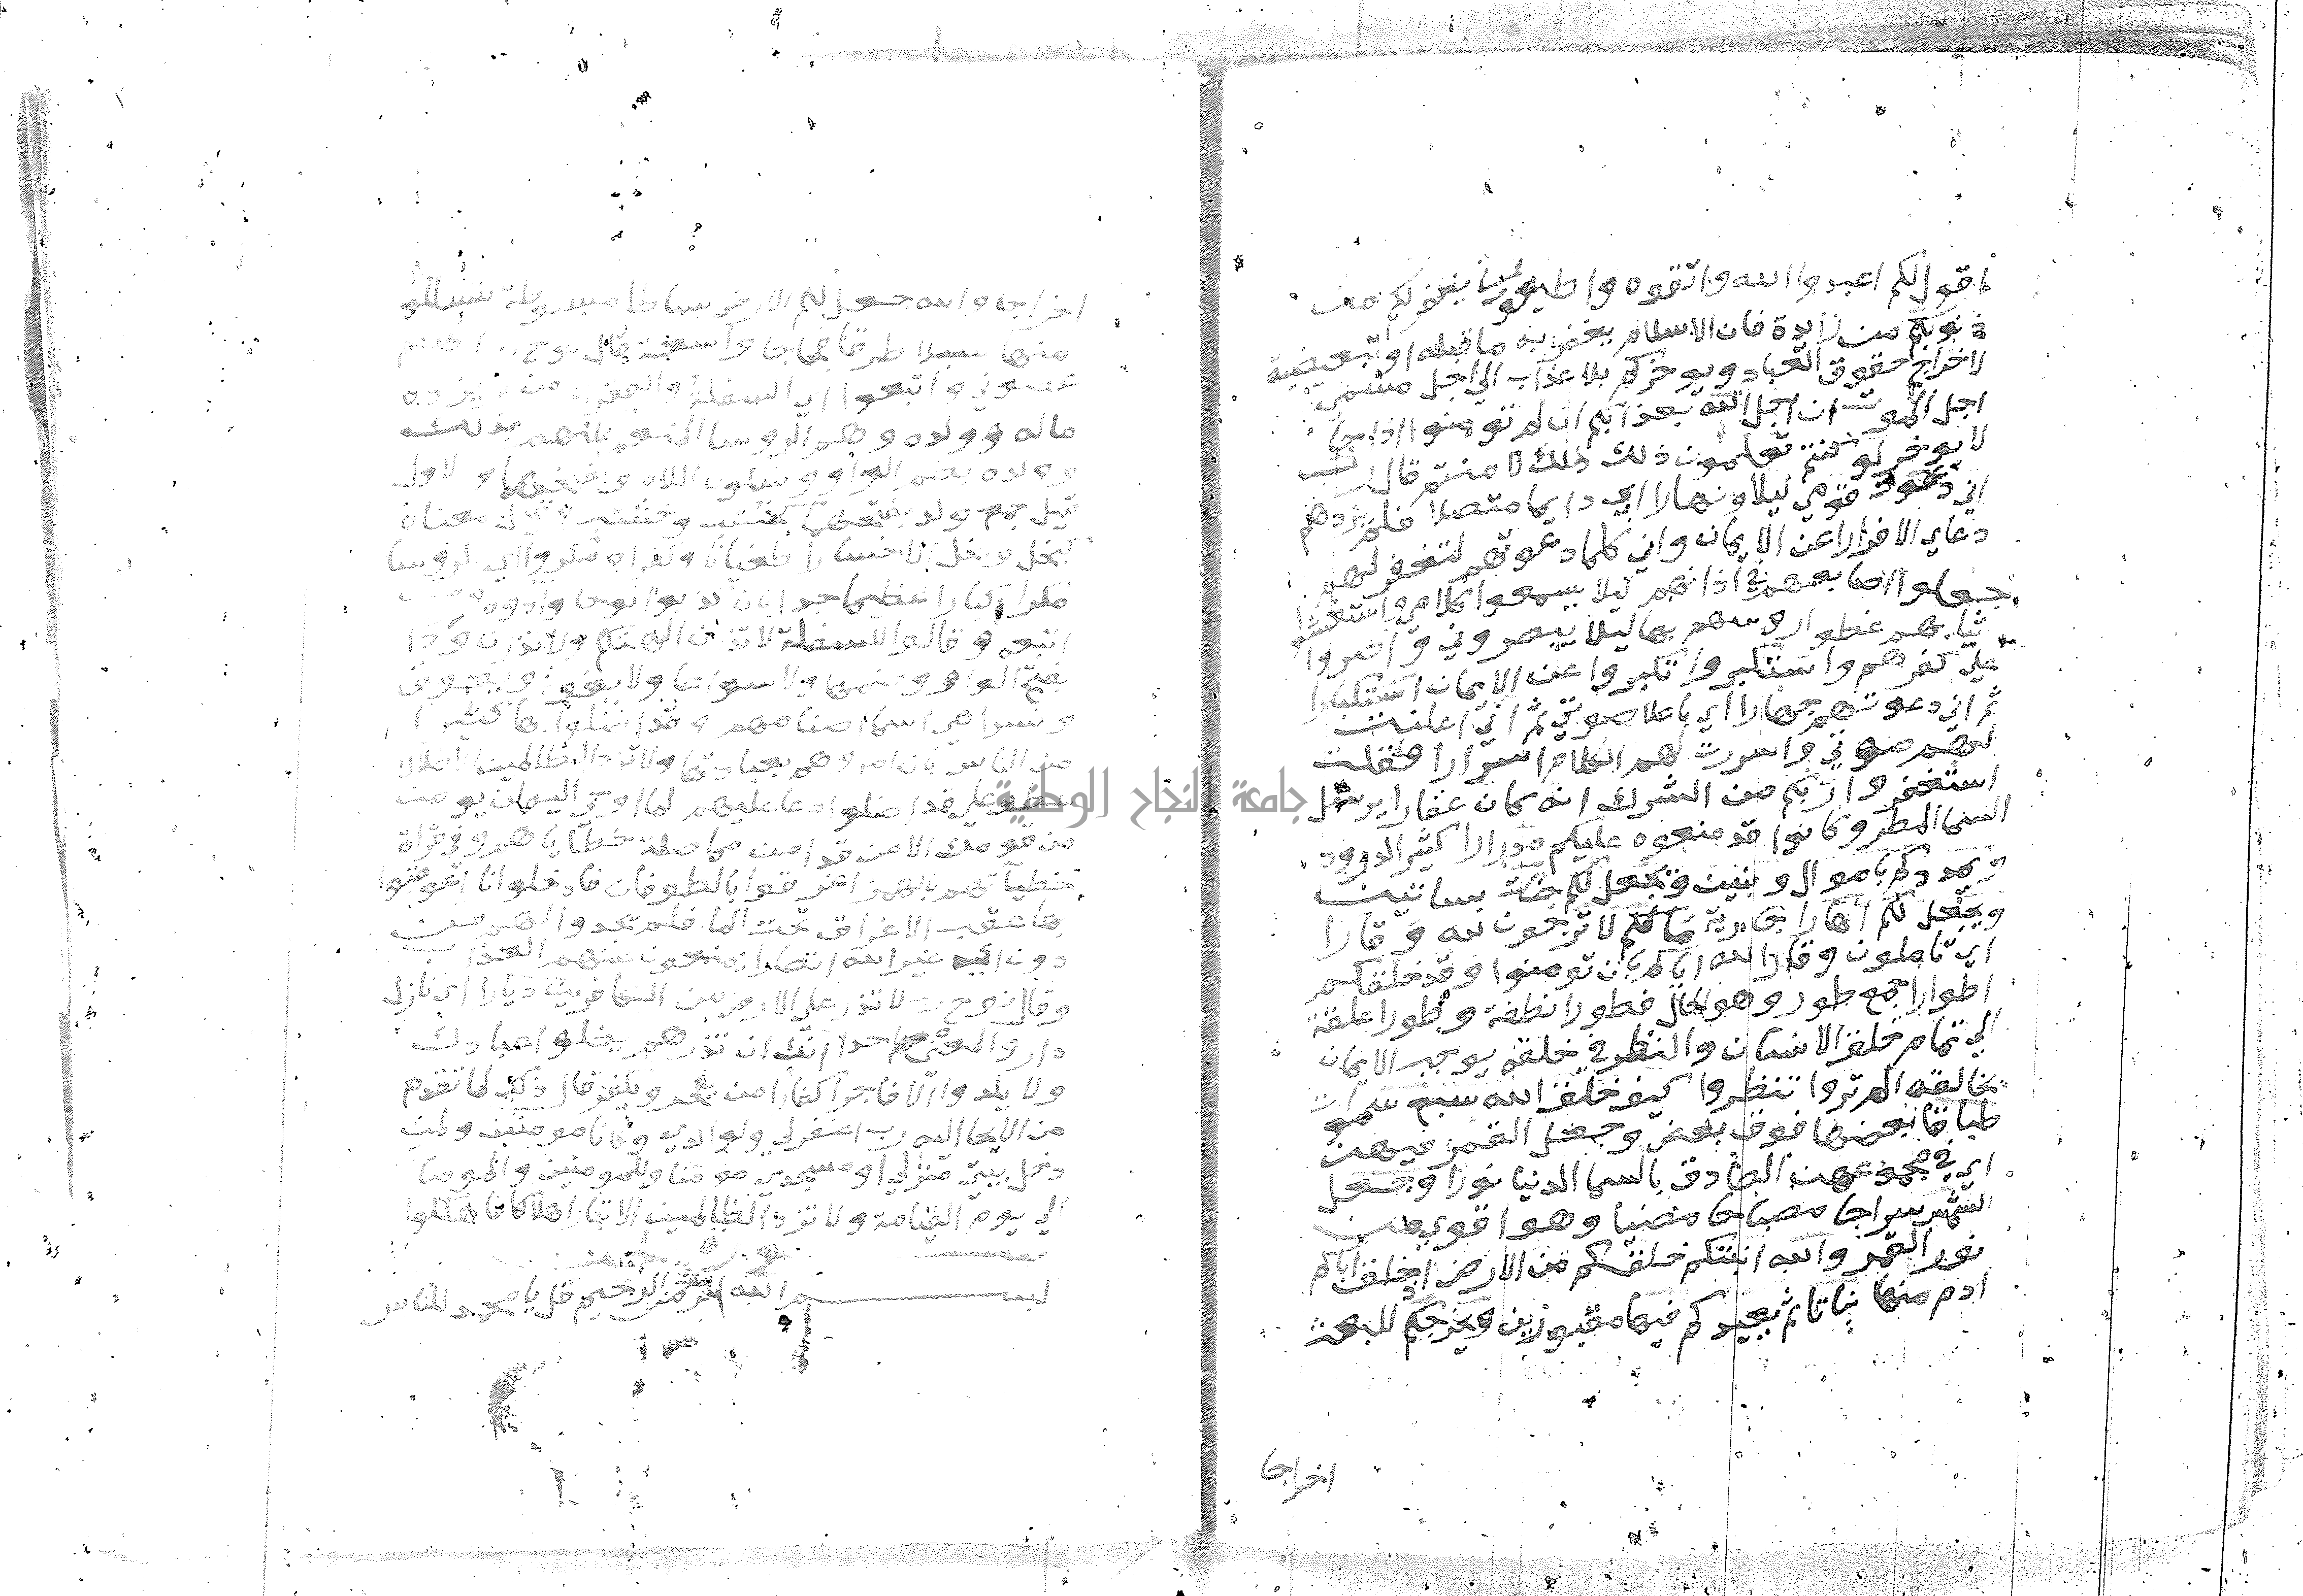 اقول لكم اعبدوا الله واتقوه واطيعون يغفر لكم من
ذنوبكم من زايدة فان الاسلام يغفر به ما قبله او تبعيضية
لاخراج حقوق العباد ويوخركم بلا عذاب الي اجل مسمي
اجل الموت ان اجل الله بعذابكم ان لم تومنوا اذا جا
لا يوخر لو كنتم تعلمون ذلك لامنتم قال رب
اني دعوت قومي ليلا ونهارا اي دايما متصلا فلم يزدهم
دعاي الا فرارا عن الايمان واني كلما دعوتهم لتغفر لهم
جعلوا اصابعهم في اذانهم ليلا يسمعوا كلامي واستغشوا
ثيابهم غطوا روسهم بها ليلا يبصروني واصروا
علي كفرهم واستكبروا تكبروا عن الايمان استكبارا
ثم اني دعوتهم جهارا اي باعلا صوتي ثم اني اعلنت
لهم صوتي واسررت لهم الكلام اسرارا فقلت
استغفروا ربكم من الشرك انه كان غفارا يرسل
السما المطر وكانوا قد منعوه عليكم مدرارا كثير الدرور
ويمددكم باموال وبنين ويجعل لكم جنات بساتين
ويجعل لكم انهارا جارية مالكم لا ترجون لله وقارا
اي تاملون وقار الله اياكم بان تومنوا وقد خلقكم
اطوارا جمع طور وهو الحال فطورا نطفة وطورا علقة
الي تمام خلق الانسان والنظر في خلقه يوجب الايمان
بخالقه الم تروا تنظروا كيف خلق الله سبع سموات
طباقا بعضها فوق بعض وجعل القمر فيهن
اي في مجموعهن الصادق بالسما الدنيا نورا وجعل
الشمس سراجا مصباحا مضيا وهو اقوي من
نور القمر والله انبتكم خلقكم من الارض اذ خلق اباكم
ادم منها نباتا ثم يعيدكم فيها مقبورين ويخرجكم للبعث
اخراجا
اخراجا والله جعل لكم الارض بساطا مبسوطة لتسلكوا
منها سبلا طرقا فجاجا واسعة قال نوح انهم
عصوني واتبعوا اي السفلة والفقرا من لم يزده
ماله وولده وهم الروسا المنعم عليهم بذلك
وولده بضم الواو وسكون اللام وبفتحها والاول
قيل جمع ولد بفتحها كخشب وخشب وقيل بمعناه
كبخل وبخل الا خسارا طغيانا وكفرا ومكروا اي الروسا
مكرا كبارا عظيما جدا بان كذبوا نوحا واذوه ومن
اتبعه وقالوا للسفلة لا تذرن الهتكم ولا تذرن ودا
بفتح الواو وضمها ولا سواعا ولا يغوث ويعوق
ونسرا هي اسما اصنامهم وقد اضلوا بها كثيرا
من الناس بان امروهم بعبادتها ولا تزد الظالمين الا ضلالا
عطف علي قد اضلوا دعا عليهم لما اوحي اليه انه لن يومن
من قومك الا من قد امن مما صلة خطاياهم وفي قراة
خطياتهم بالهمز اغرقوا بالطوفان فادخلوا نارا عوقبوا
بها عقب الاغراق تحت الما فلم يجدوا لهم من
دون اي غير الله انصارا يمنعون عنهم العذاب
وقال نوح رب لا تذر علي الارض من الكافرين ديارا اي نازل
دار والمعني احدا انك ان تذرهم يضلوا عبادك
ولا يلدوا الا فاجرا كفارا من يفجر ويكفر قال ذلك لما تقدم
من الايحا اليه رب اغفر لي ولوالدي وكانا مومنين ولمن
دخل بيتي منزلي او مسجدي مومنا وللمومنين والمومنات
الي يوم القيامة ولا تزد الظالمين الا تبارا هلاكا فاهلكوا
بسم الله الرحمن الرحيم قل يا محمد للناس
جامعة النجاح الوطنية